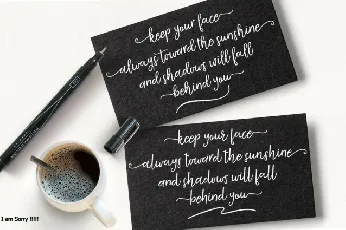 keep your face
always toward the sunshine
and shadows will fall
behind you
keep your face
always toward the sunshine
and shadows will fall
behind you
I am Sorry !!!!